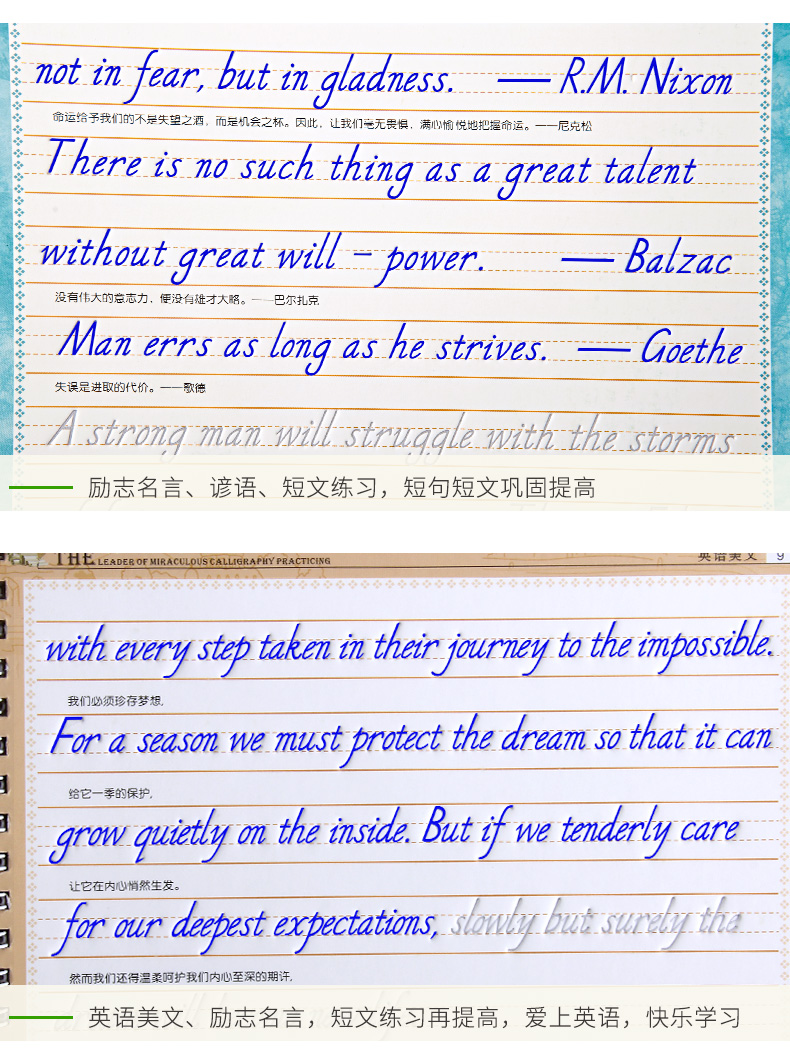 not in fear, but in gladness. — R.M. Nixon
命运给予我们的不是失望之酒，而是机会之杯。因此，让我们毫无畏惧，满心愉悦地把握命运。——尼克松
There is no such thing as a great talent
without great will - power. — Balzac
没有伟大的意志力，便没有雄才大略。——巴尔扎克
Man errs as long as he strives. — Goethe
失误是进取的代价。——歌德
A strong man will struggle with the storms
励志名言、谚语、短文练习，短句短文巩固提高
THE LEADER OF MIRACULOUS CALLIGRAPHY PRACTICING
英语美文 9
with every step taken in their journey to the impossible.
我们必须珍存梦想，
For a season we must protect the dream so that it can
给它一季的保护，
grow quietly on the inside. But if we tenderly care
让它在内心悄然生发。
for our deepest expectations, slowly but surely the
然而我们还得温柔呵护我们内心至深的期许，
英语美文、励志名言，短文练习再提高，爱上英语，快乐学习